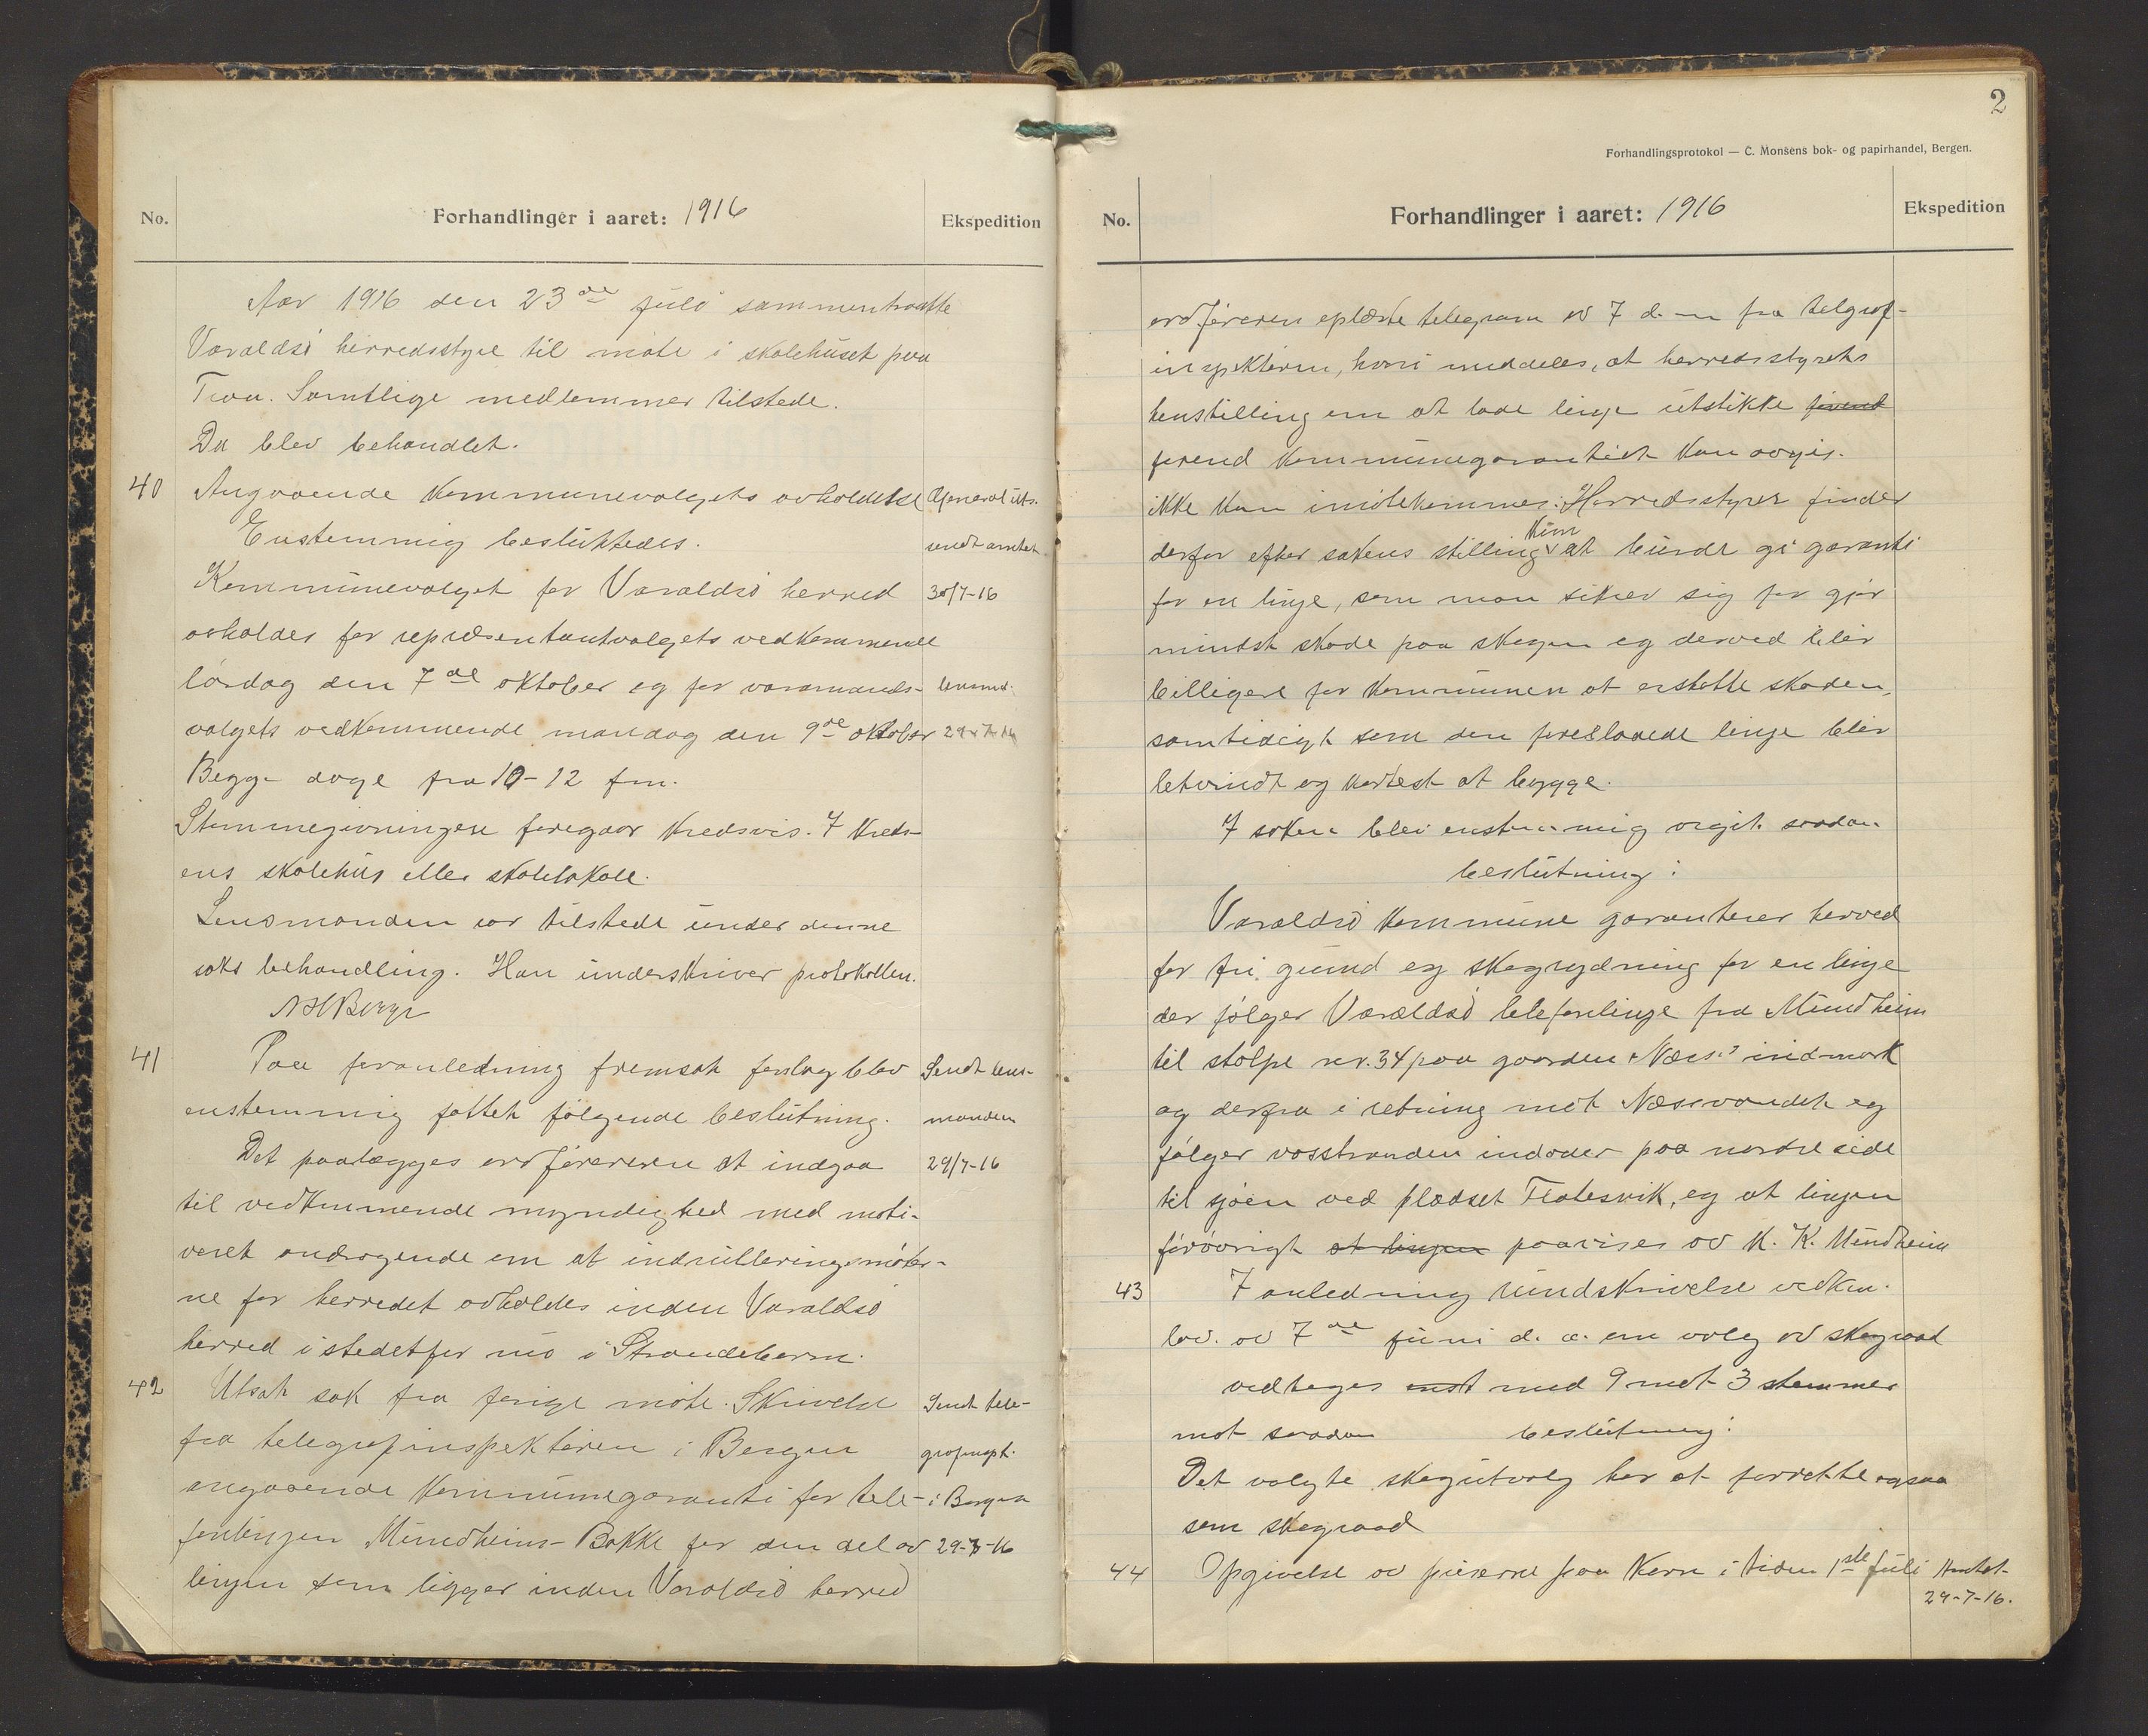 No.
Forhandlinger i aaret: 1916
Ekspedition
Aar 1916 den 23de juli sammentraatte
Varaldsö herredsstyre til möte i skolehuset paa
Traa. Samtlige medlemmer tilstede.
Da blev behandlet.
40 Angaaende kommunevalgets avholdelse
Enstemmig besluttedes.
sendt amtet
Kommunevalget for Varaldsö herred
30/7-16
avholdes for repræsentantvalgets vedkommende
lördag den 7de oktober og for varamands-
lensmd.
valgets vedkommende mandag den 9de oktober
29-7-16
Begge dage fra 10-12 fm.
Stemmegivningen foregaar kredsvis. I kreds-
ens skolehus eller skolelokale.
Lensmanden var tilstede under denne
saks behandling. Han underskriver protokollen.
41 Paa foranledning fremsat forslag blev
Sendt lens-
enstemmig fattet fölgende beslutning.
manden
Det paalægges ordföreren at indgaa
29/7-16
til vedkommende myndighed med moti-
veret andragende om at indrulleringsmöter-
ne for herredet avholdes inden Varaldsö
herred istedetfor nu i Strandebarm.
42 Utsat sak fra forige möte. Skrivelse
Sendt tele-
fra telegrafinspektören i Bergen
grafinspt.
angaaende kommunegaranti for tele-
i Bergen
fonlinjen Mundheim-Bakke for den del av
29-7-16
linjen som ligger inden Varaldsö herred
2
Forhandlingsprotokol — C. Monsens bok- og papirhandel, Bergen.
No.
Forhandlinger i aaret: 1916
Ekspedition
ordföreren oplæste telegram av 7 d. m fra telgraf-
inspektören, hvori meddeles, at herredsstyrets
henstilling om at lade linje utstikke forend
forend kommunegarantiet kan avgis.
ikke kan imötekommes. Herredsstyret finder
derfor efter sakens stilling kun at burde gi garanti
for en linje, som man sikrer sig for gjör
mindst skade paa skogen og derved blir
billigere for kommunen at erstatte skaden,
samtidigt som den foreslaaede linje blir
letvindt og kortest at bygge.
I saken blev enstemmig avgit saadan
beslutning:
Varaldsö kommune garanterer herved
for fri grund og skogrydning for en linje
der fölger Varaldsö telefonlinje fra Mundheim
til stolpe nr. 34 paa gaarden "Næs" indmark
og derfra i retning mot Næsevandet og
fölger vasstranden indover paa nordre side
til sjöen ved pladset Flatesvik, og at linjen
forövrigt at linjen paavises av K. K. Mundheim
43 I anledning rundskrivelse vedkom.
lov. av 7de juni d. a. om valg av skograad
vedtages enst med 9 mot 3 stemmer
mot saadan beslutning:
Det valgte skogutvalg har at forrette ogsaa
som skograad
44 Opgivelse av priserne paa korn i tiden 1ste juli
Amtet
29-7-16.